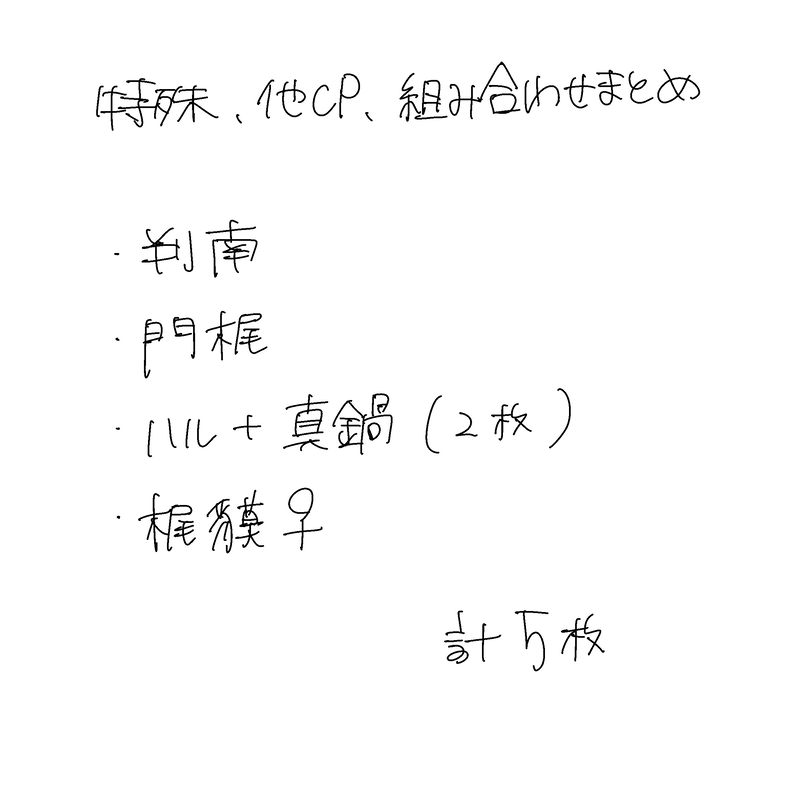 特殊、他CP、組み合わせまとめ
・判南
・門梶
・ハル+真鍋(2枚)
・梶貘♀
計5枚